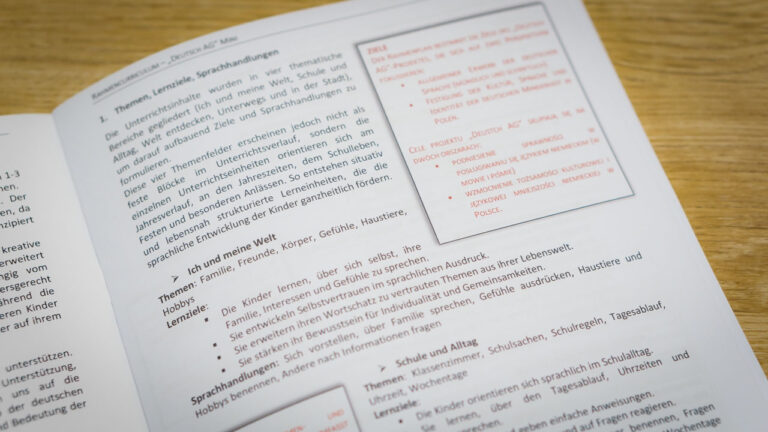 1-3
hen.
. Der
n, da
nzipiert
kreative
erweitert
ngig vom
ersgerecht
ährend die
eren Kinder
er auf ihrem
unterstützen.
Unterstützung,
uns auf die
der deutschen
nd Bedeutung der
RAHMENCURRICULUM – „DEUTSCH AG” MINI
1. Themen, Lernziele, Sprachhandlungen
Die Unterrichtsinhalte wurden in vier thematische
Bereiche gegliedert (Ich und meine Welt, Schule und
Alltag, Welt entdecken, Unterwegs und in der Stadt),
um darauf aufbauend Ziele und Sprachhandlungen zu
formulieren.
Diese vier Themenfelder erscheinen jedoch nicht als
feste Blöcke im Unterrichtsverlauf, sondern die
einzelnen Unterrichtseinheiten orientieren sich am
Jahresverlauf, an den Jahreszeiten, dem Schulleben,
Festen und besonderen Anlässen. So entstehen situativ
und lebensnah strukturierte Lerneinheiten, die die
sprachliche Entwicklung der Kinder ganzheitlich fördern.
ZIELE
DER RAHMENPLAN BESTIMMT DIE ZIELE DES „DEUTSCH
AG”-PROJEKTES, DIE SICH AUF ZWEI PERSPEKTIVEN
FOKUSSIEREN:
• ALLGEMEINER ERWERB DER DEUTSCHEN
SPRACHE (MÜNDLICH UND SCHRIFTLICH)
• FESTIGUNG DER KULTUR, SPRACHE UND
IDENTITÄT DER DEUTSCHEN MINDERHEIT IN
POLEN.
CELE PROJEKTU „DEUTSCH AG” SKUPIAJĄ SIĘ NA
DWÓCH OBSZARACH:
• PODNIESIENIE SPRAWNOŚCI W
POSŁUGIWANIU SIĘ JĘZYKIEM NIEMIECKIM (W
MOWIE I PIŚMIE)
• WZMOCNIENIE TOŻSAMOŚCI KULTUROWEJ I
JĘZYKOWEJ MNIEJSZOŚCI NIEMIECKIEJ W
POLSCE.
➢ Ich und meine Welt
Themen: Familie, Freunde, Körper, Gefühle, Haustiere,
Hobbys
Lernziele:
▪ Die Kinder lernen, über sich selbst, ihre
Familie, Interessen und Gefühle zu sprechen.
▪ Sie entwickeln Selbstvertrauen im sprachlichen Ausdruck.
▪ Sie erweitern ihren Wortschatz zu vertrauten Themen aus ihrer Lebenswelt.
▪ Sie stärken ihr Bewusstsein für Individualität und Gemeinsamkeiten.
Sprachhandlungen: Sich vorstellen, über Familie sprechen, Gefühle ausdrücken, Haustiere und
Hobbys benennen, Andere nach Informationen fragen
➢ Schule und Alltag
Themen: Klassenzimmer, Schulsachen, Schulregeln, Tagesablauf,
Uhrzeit, Wochentage
Lernziele:
▪ Die Kinder orientieren sich sprachlich im Schulalltag.
▪ Sie lernen, über den Tagesablauf, Uhrzeiten und
sprechen.
geben einfache Anweisungen.
und auf Fragen reagieren.
benennen, Fragen
Wochentage
UND